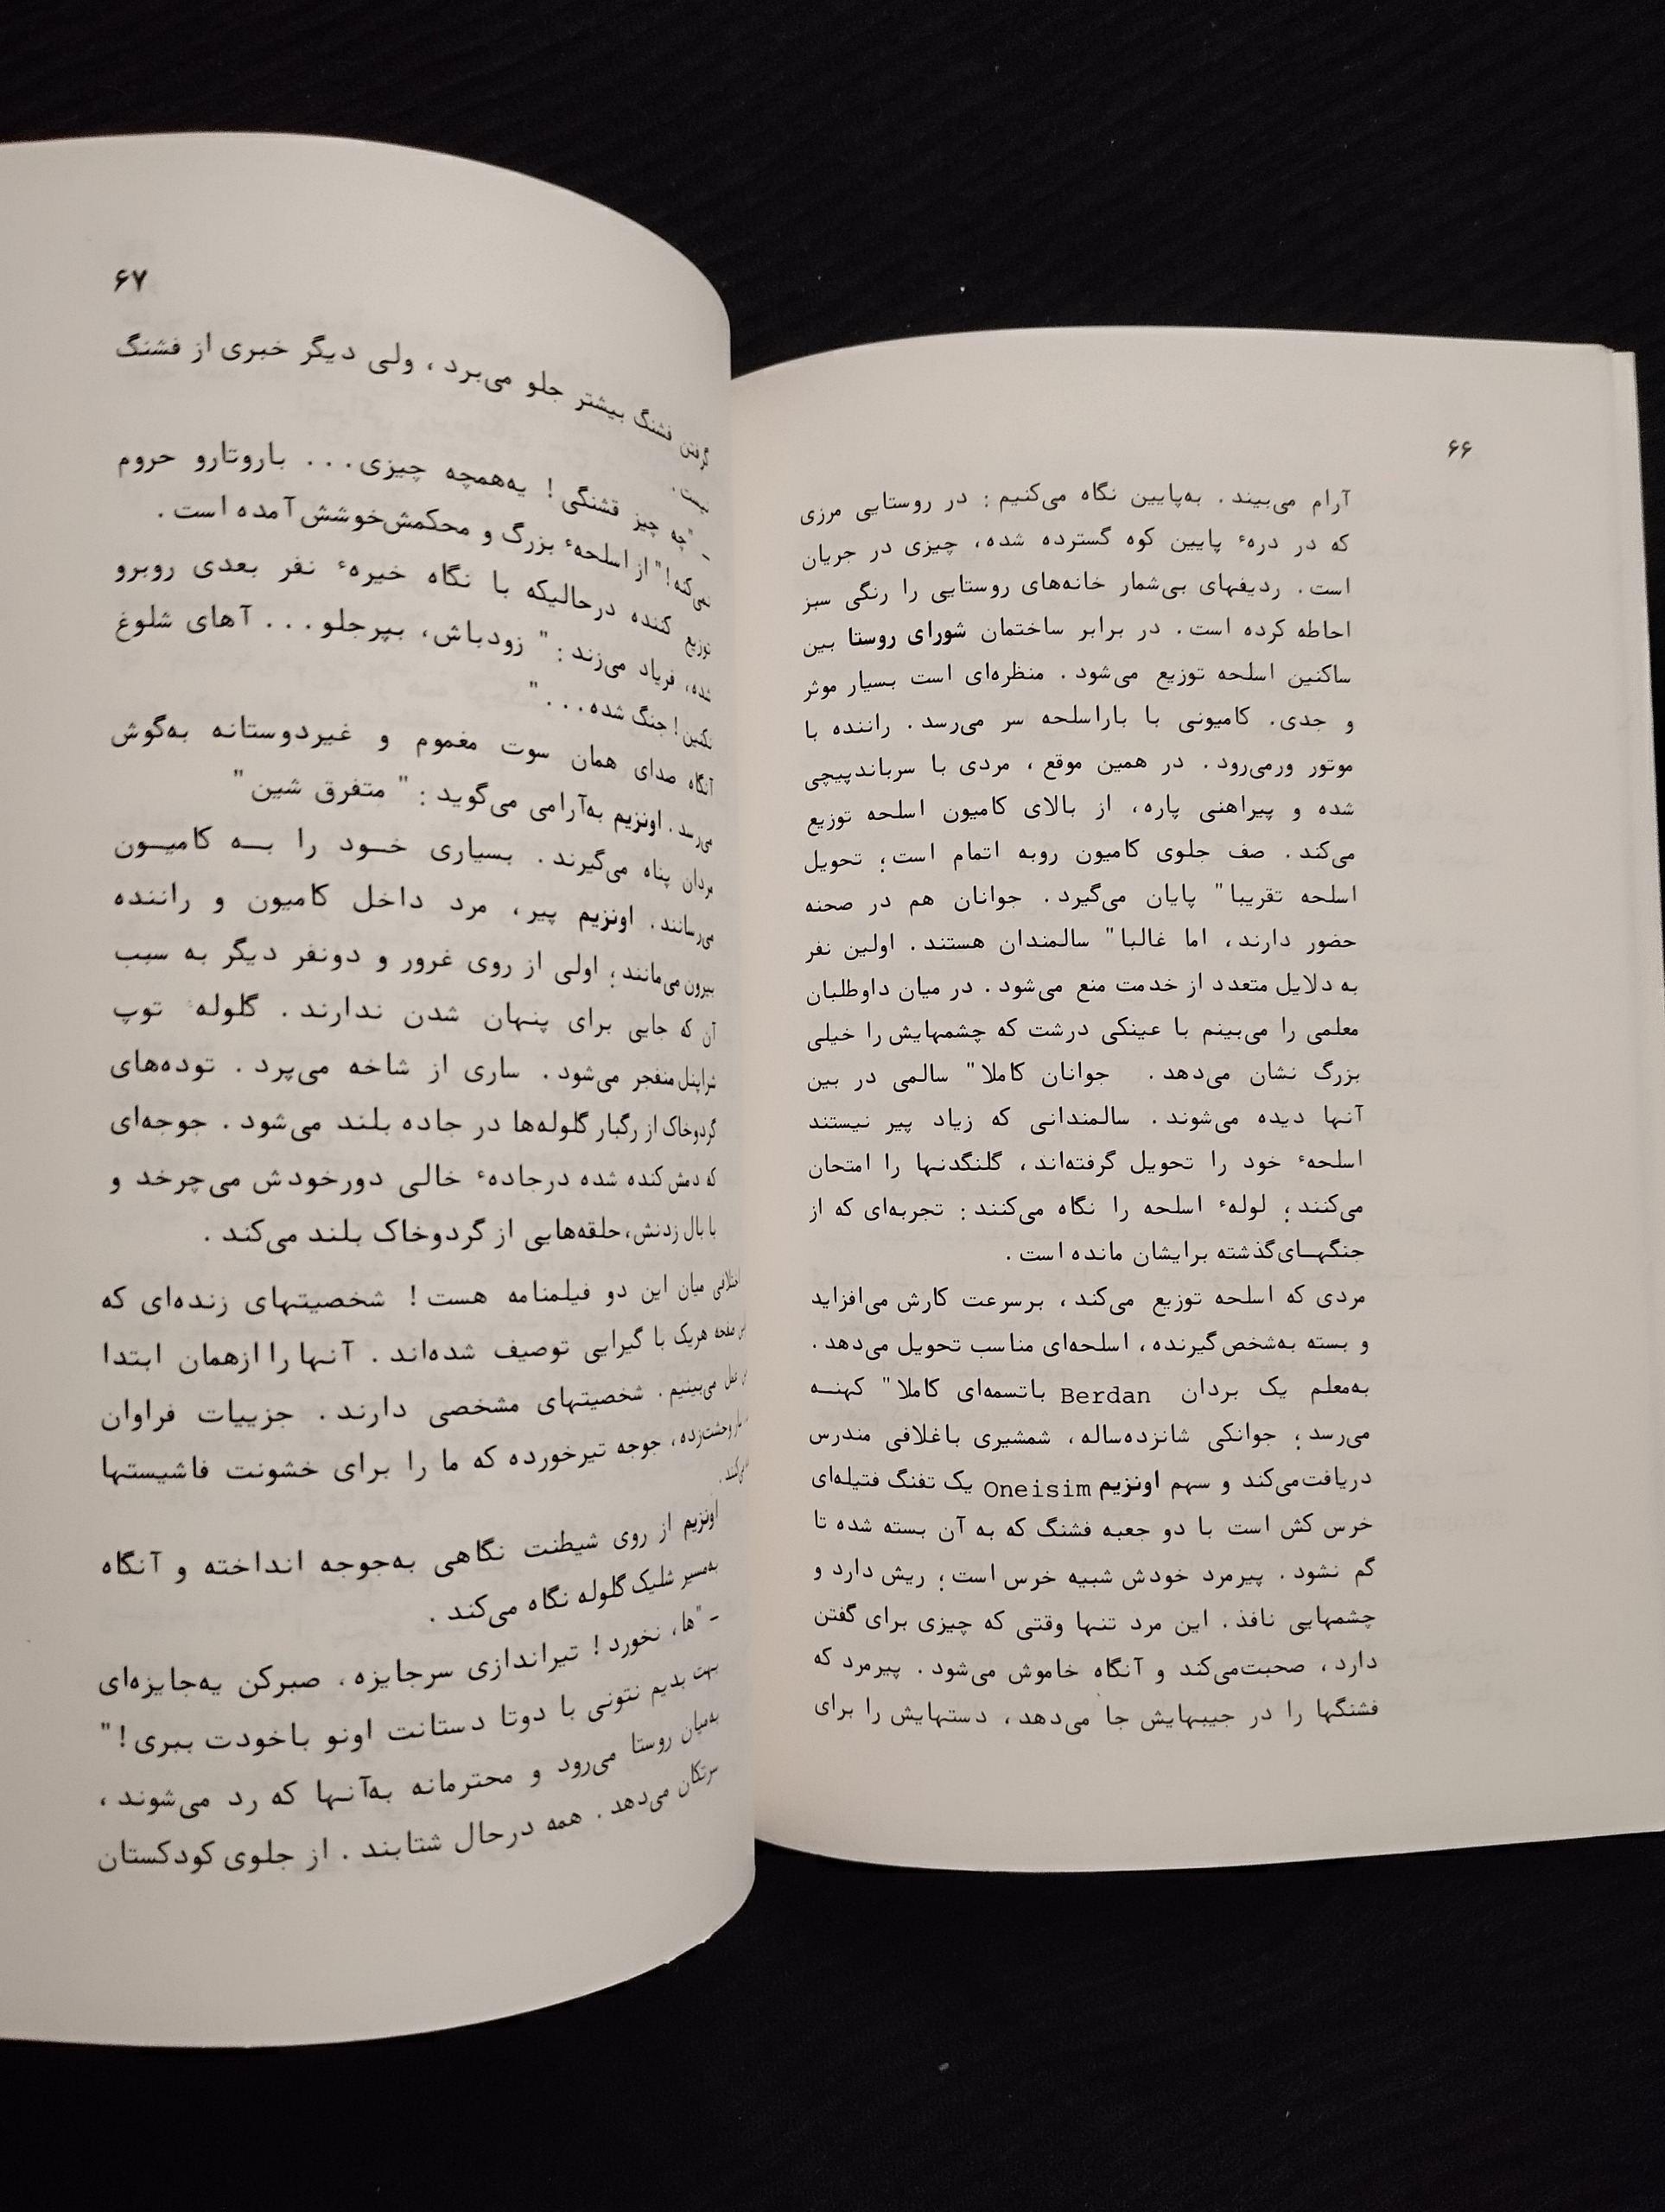 ۶۶
آرام می‌بیند. به‌پایین نگاه می‌کنیم: در روستایی مرزی
که در درهٔ پایین کوه گسترده شده، چیزی در جریان
است. ردیفهای بی‌شمار خانه‌های روستایی را رنگی سبز
احاطه کرده است. در برابر ساختمان شورای روستا بین
ساکنین اسلحه توزیع می‌شود. منظره‌ای است بسیار موثر
و جدی. کامیونی با باراسلحه سر می‌رسد. راننده با
موتور ورمی‌رود. در همین موقع، مردی با سرباندپیچی
شده و پیراهنی پاره، از بالای کامیون اسلحه توزیع
می‌کند. صف جلوی کامیون روبه اتمام است؛ تحویل
اسلحه تقریبا" پایان می‌گیرد. جوانان هم در صحنه
حضور دارند، اما غالبا" سالمندان هستند. اولین نفر
به دلایل متعدد از خدمت منع می‌شود. در میان داوطلبان
معلمی را می‌بینم با عینکی درشت که چشمهایش را خیلی
بزرگ نشان می‌دهد. جوانان کاملا" سالمی در بین
آنها دیده می‌شوند. سالمندانی که زیاد پیر نیستند
اسلحهٔ خود را تحویل گرفته‌اند، گلنگدنها را امتحان
می‌کنند؛ لولهٔ اسلحه را نگاه می‌کنند: تجربه‌ای که از
جنگهای‌گذشته برایشان مانده است.
مردی که اسلحه توزیع می‌کند، برسرعت کارش می‌افزاید
و بسته به‌شخص‌گیرنده، اسلحه‌ای مناسب تحویل می‌دهد.
به‌معلم یک بردان Berdan باتسمه‌ای کاملا" کهنه
می‌رسد؛ جوانکی شانزده‌ساله، شمشیری باغلافی مندرس
دریافت‌می‌کند و سهم اونزیم Oneisim یک تفنگ فتیله‌ای
خرس کش است با دو جعبه فشنگ که به آن بسته شده تا
گم نشود. پیرمرد خودش شبیه خرس است؛ ریش دارد و
چشمهایی نافذ. این مرد تنها وقتی که چیزی برای گفتن
دارد، صحبت‌می‌کند و آنگاه خاموش می‌شود. پیرمرد که
فشنگها را در جیبهایش جا می‌دهد، دستهایش را برای
۶۷
گرفتن فشنگ بیشتر جلو می‌برد، ولی دیگر خبری از فشنگ
نیست.
- "چه چیز قشنگی! یه‌همچه چیزی... باروتارو حروم
نمی‌کنه!" از اسلحهٔ بزرگ و محکمش‌خوشش آمده است.
توزیع کننده درحالیکه با نگاه خیرهٔ نفر بعدی روبرو
شده، فریاد می‌زند: " زودباش، بپرجلو... آهای شلوغ
نکنین! جنگ شده..."
آنگاه صدای همان سوت مغموم و غیردوستانه به‌گوش
می‌رسد. اونزیم به‌آرامی می‌گوید: " متفرق شین"
مردان پناه می‌گیرند. بسیاری خود را به کامیون
می‌رسانند. اونزیم پیر، مرد داخل کامیون و راننده
بیرون می‌مانند؛ اولی از روی غرور و دونفر دیگر به سبب
آن که جایی برای پنهان شدن ندارند. گلولهٔ توپ
شراپنل منفجر می‌شود. ساری از شاخه می‌پرد. توده‌های
گردوخاک از رگبار گلوله‌ها در جاده بلند می‌شود. جوجه‌ای
که دمش کنده شده درجادهٔ خالی دورخودش می‌چرخد و
با بال زدنش، حلقه‌هایی از گردوخاک بلند می‌کند.
میان این دو فیلمنامه هست! شخصیتهای زنده‌ای که
صفحه هریک با گیرایی توصیف شده‌اند. آنها را ازهمان ابتدا
می‌بینیم. شخصیتهای مشخصی دارند. جزییات فراوان
وحشت‌زده، جوجه تیرخورده که ما را برای خشونت فاشیستها
اونزیم از روی شیطنت نگاهی به‌جوجه انداخته و آنگاه
به‌مسیر شلیک گلوله نگاه می‌کند.
- "ها، نخورد! تیراندازی سرجایزه. صبرکن یه‌جایزه‌ای
بهت بدیم نتونی با دوتا دستانت اونو باخودت ببری!"
به‌میان روستا می‌رود و محترمانه به‌آنها که رد می‌شوند،
سرتکان می‌دهد. همه درحال شتابند. از جلوی کودکستان